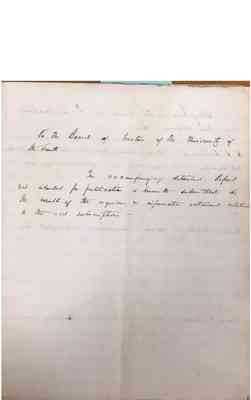 To the Board of Trustees of the University of
the South
The accompanying detailed Report
not intended for publication is herewith submitted as
the result of the inquiries & information obtained relative
to the old subscriptions